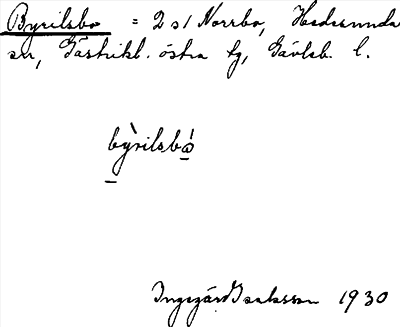 Byrilsbo = 2 st Norrbo, Hedesunda
sn, Gästrikl. östra tg, Gävleb. l.
bỳrilsbo̲
Ingegärd Isaksson 1930